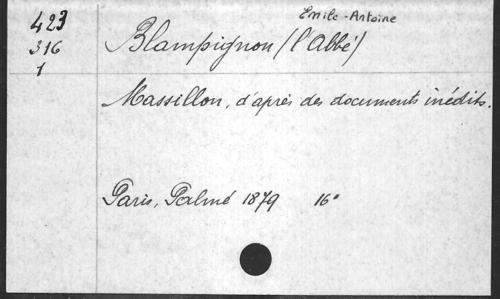 423
316
1
Emile-Antoine
Blampignon (l'Abbé)
Massillon, d'après des documents inédits.
Paris, Palmé 1879 16°